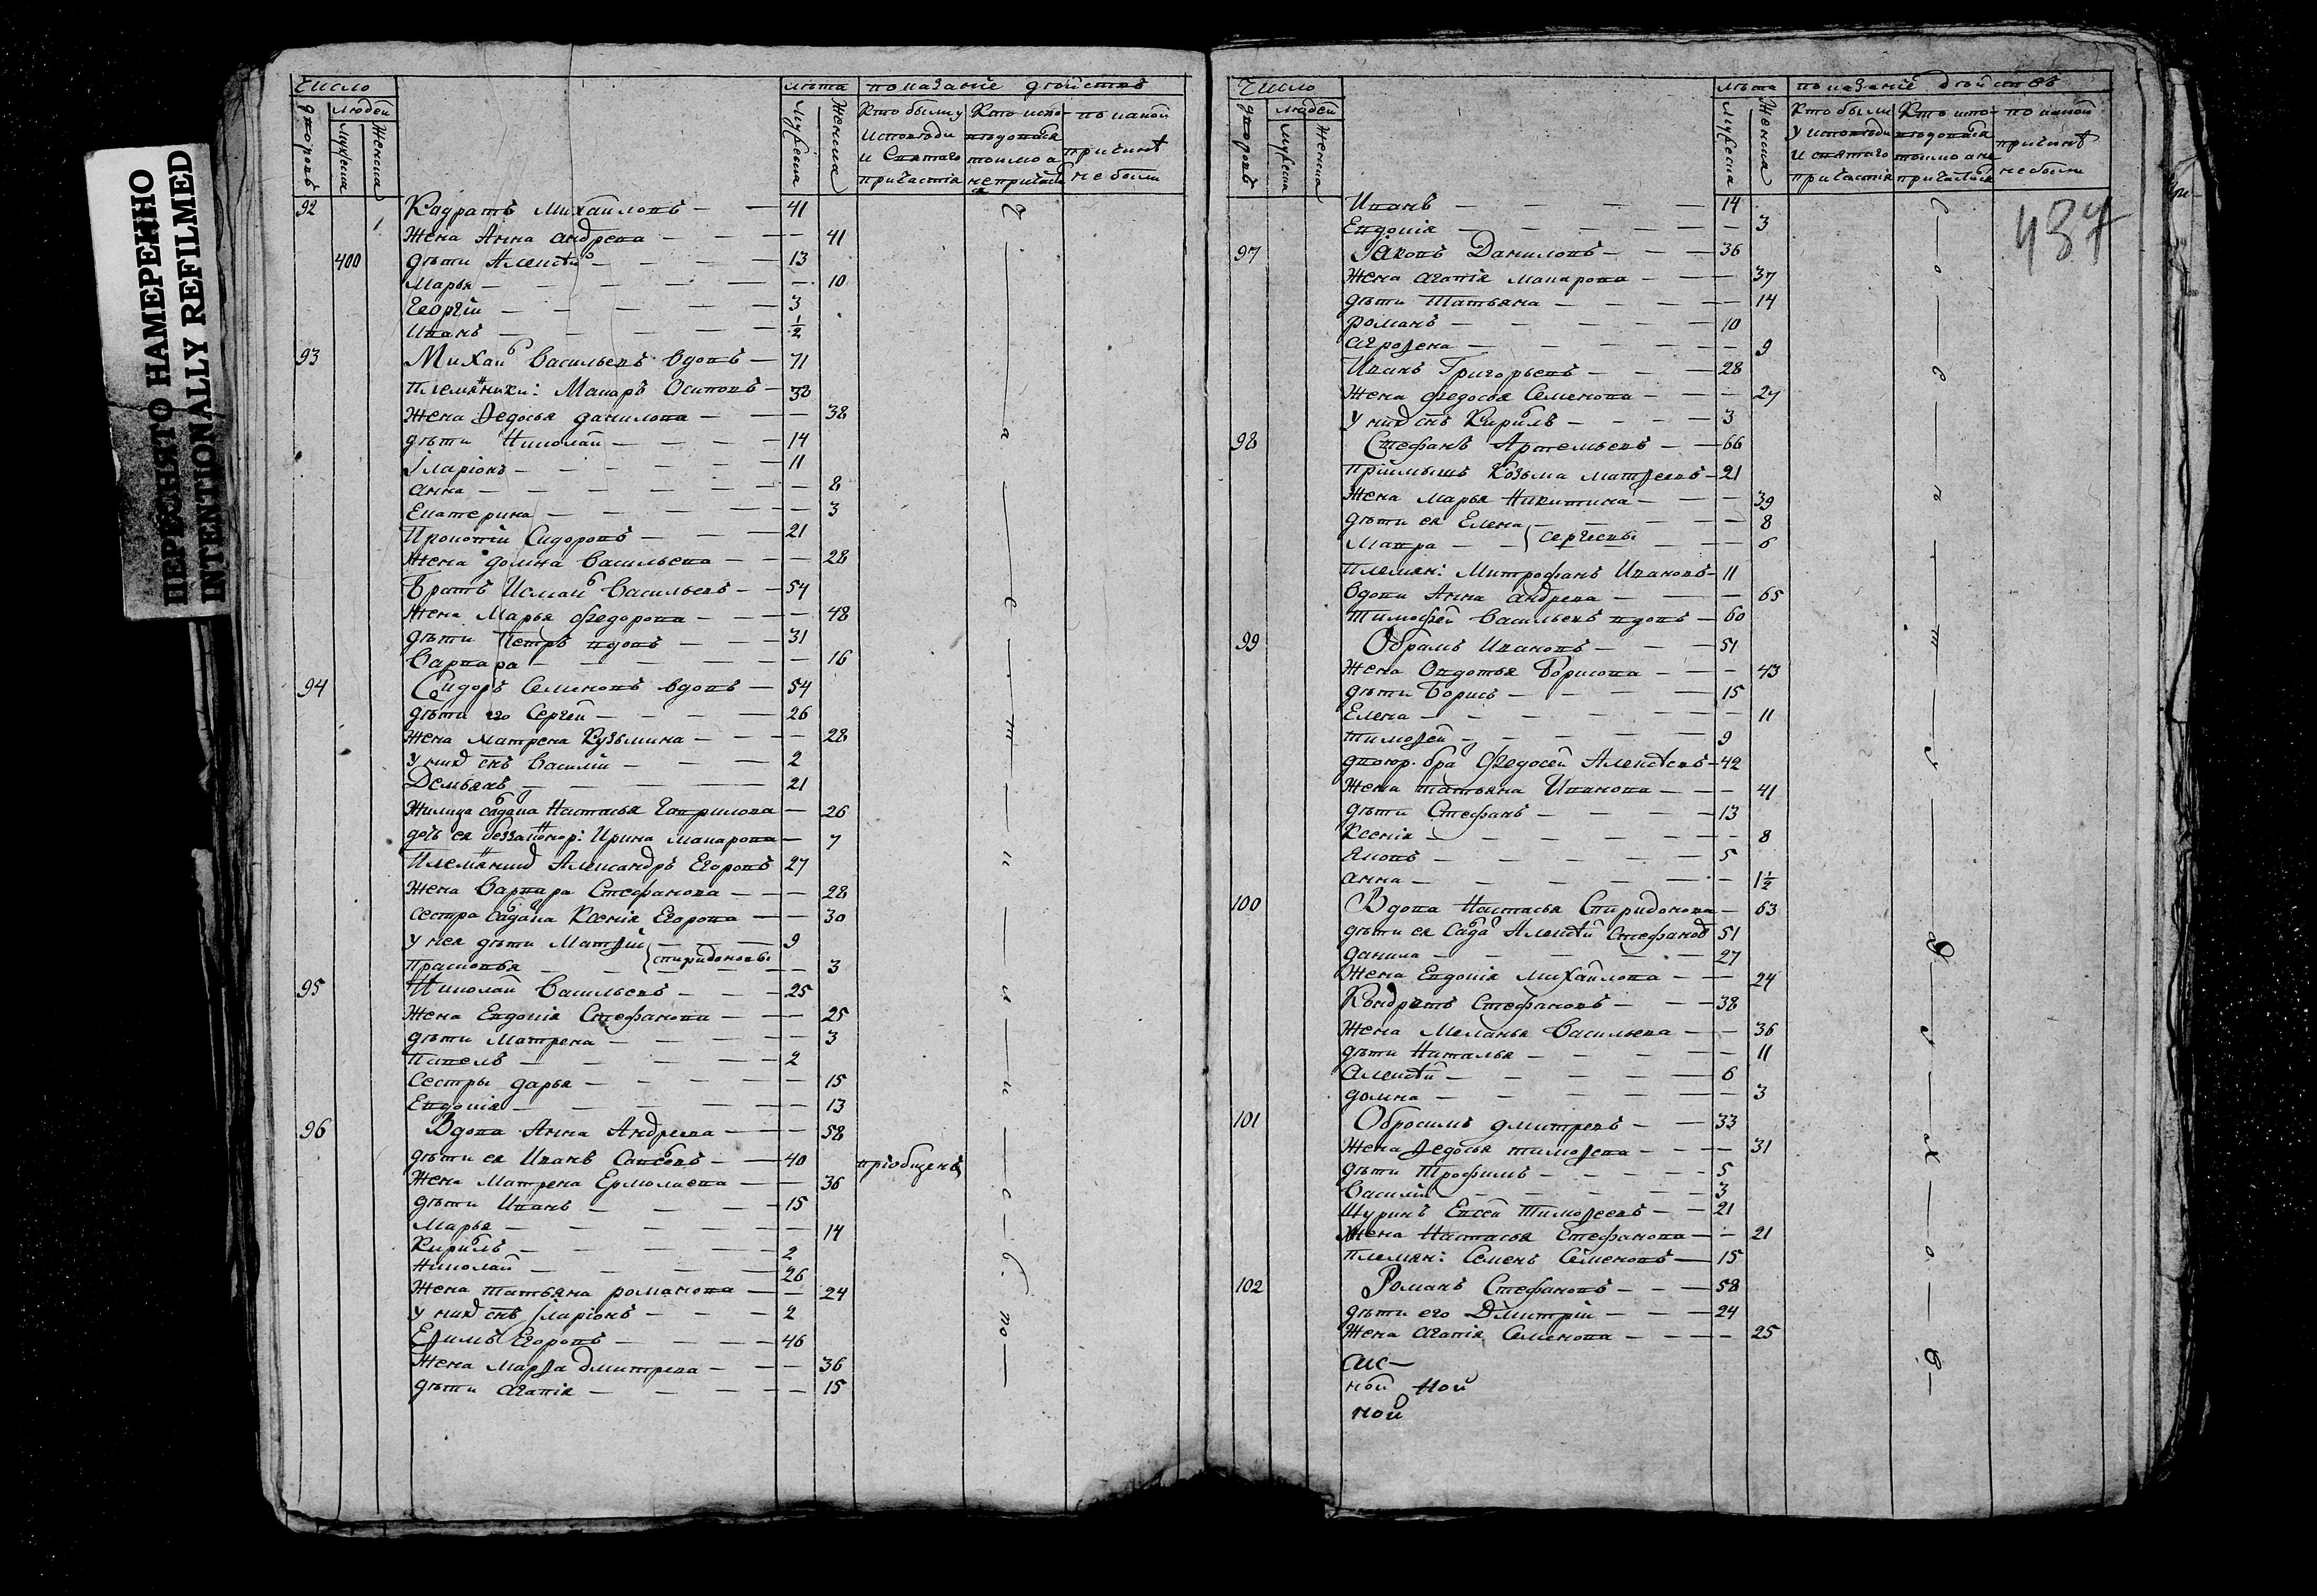 ПЕРЕСНЯТО НАМЕРЕННО
INTENTIONALLY REFILMED
Число лѣта показаніе двойствъ
дворовъ людей мужеска женска Кто были у исповѣди и Святаго причастія
Кто исповѣдовался токмо а не причаст
по какой причинѣ не были
92 Кадратъ Михайловъ — — 41
Жена Анна андрева — — — — 41
400 дѣти Алексѣй — — — — 13
Марья — — — — — — 10
Георгій — — — — 3
Иванъ — — — — — ½
93 Михай Васильевъ вдовъ — 71
племянники: Макаръ Осиповъ — 33
Жена Ѳедосья данилова — — — 38
дѣти Николай — — — — 14
Іларіонъ — — — — — — 11
анна — — — — — — — 8
Екатерина — — — — — — 3
Прокопій Сидоровъ — — — 21
Жена домна Васильева — — — 28
Братъ Исакій Васильевъ — — 54
Жена Марья Федорова — — — 48
дѣти Петръ вдовъ — — — 31
Варвара — — — — — — 16
94 Сидоръ Семеновъ вдовъ — 54
дѣти его Сергей — — — — 26
Жена матрена Кузьмина — — — — 28
у них снъ Василій — — — 2
Демьянъ — — — — — 21
Жилица салдака Настасья Гаврилова — 26
дочь ея беззаконор: Ирина Макарова — 7
Племянник Александръ Егоровъ 27
Жена Варвара Стефанова — — — 28
сестра салдака Ксенія Егорова — — 30
у нея дѣти Матѳѣй — — — 9
Прасковья — — } спиридоновы — — 3
95 Николай Васильевъ — — — 25
Жена Евдокія Стефанова — — — 25
дѣти Матрена — — — — — 3
Павелъ — — — — — 2
сестры дарья — — — — — — 15
Евдокія — — — — — — 13
96 Вдова Анна Андреева — — — 58
дѣти ея Иванъ Савельевъ — — 40 пріобщенъ
Жена Матрена Ермолаева — — — 36
дѣти Иванъ — — — — 15
Марья — — — — — — 14
Кирилъ — — — — — 2
Николай — — — — — 26
Жена татьяна романова — — 24
у них снъ Іларіонъ — — — 2
Еѳимъ Егоровъ — — — — 46
Жена марѳа дмитрева — — — 36
дѣти агапія — — — — — 15
Число лѣта показаніе двойствъ
дворовъ людей мужеска женска Кто были у исповѣди и святаго причастія
Кто исповѣдовался токмо а не причастился
по какой причинѣ не были
437
Иванъ — — — — — 14
Евдокія — — — — — — 3
97 Іаковъ Даниловъ — — — 36
Жена агапія макарова — — — 37
дѣти Татьяна — — — — — 14
романъ — — — — — — 10
агроѳена — — — — — 9
Иванъ Григорьевъ — — — 28
Жена федосья Семенова — — — 27
у них снъ Кирилъ — — — 3
98 Стефанъ Артемьевъ — — 66
пріймышъ Козьма матѳеевъ — 21
Жена марья Никитина — — — 39
дѣти ея Елена — — — — — 8
мавра — — } сергеевы — — 6
племян: Митрофанъ Ивановъ — 11
вдова Анна андрева — — — 65
тимофей Васильевъ вдовъ — 60
99 Обрамъ Ивановъ — — — 51
Жена Овдотья Борисова — — — 43
дѣти Борисъ — — — — 15
Елена — — — — — — 11
тимоѳей — — — — — 9
двоюр. бра Федосей Алексѣевъ — 42
Жена татьяна Иванова — — — 41
дѣти Стефанъ — — — — 13
Ксенія — — — — — — 8
Яковъ — — — — — 5
анна — — — — — — 1½
100 Вдова Настасья Спиридонова — 63
дѣти ея Салда Алексѣй Стефанов 51
данила — — — — — 27
Жена Евдокія михайлова — — 24
Кондратъ Стефановъ — — — 38
Жена Меланья Васильева — — 36
дѣти Наталья — — — — — 11
алексѣй — — — — — 6
домна — — — — — — 3
101 Обросимъ дмитревъ — — 33
Жена Ѳедосья тимоѳева — — — 31
дѣти Трофимъ — — — — 5
Василій — — — — — — 3
Шуринъ Евсей Тимоѳеевъ — — 21
Жена Настасья Стефанова — — 21
племян: Семенъ Семеновъ — 15
102 Романъ Стефановъ — — — 58
дѣти его Дмитрій — — — 24
Жена агапія Семенова — — — — 25
ной ной
ной